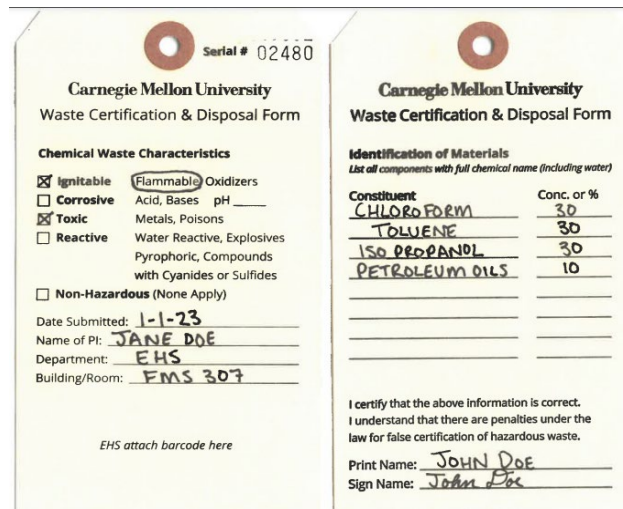 Serial # 02480
Carnegie Mellon University
Waste Certification & Disposal Form
Chemical Waste Characteristics
Ignitable Flammable Oxidizers
Corrosive Acid, Bases pH
Toxic Metals, Poisons
Reactive Water Reactive, Explosives
Pyrophoric, Compounds
with Cyanides or Sulfides
Non-Hazardous (None Apply)
Date Submitted: 1-1-23
Name of PI: JANE DOE
Department: EHS
Building/Room: FMS 307
EHS attach barcode here
Carnegie Mellon University
Waste Certification & Disposal Form
Identification of Materials
List all components with full chemical name (including water)
Constituent Conc. or %
CHLOROFORM 30
TOLUENE 30
ISOPROPANOL 30
PETROLEUM OILS 10
I certify that the above information is correct.
I understand that there are penalties under the
law for false certification of hazardous waste.
Print Name: JOHN DOE
Sign Name: John Doe